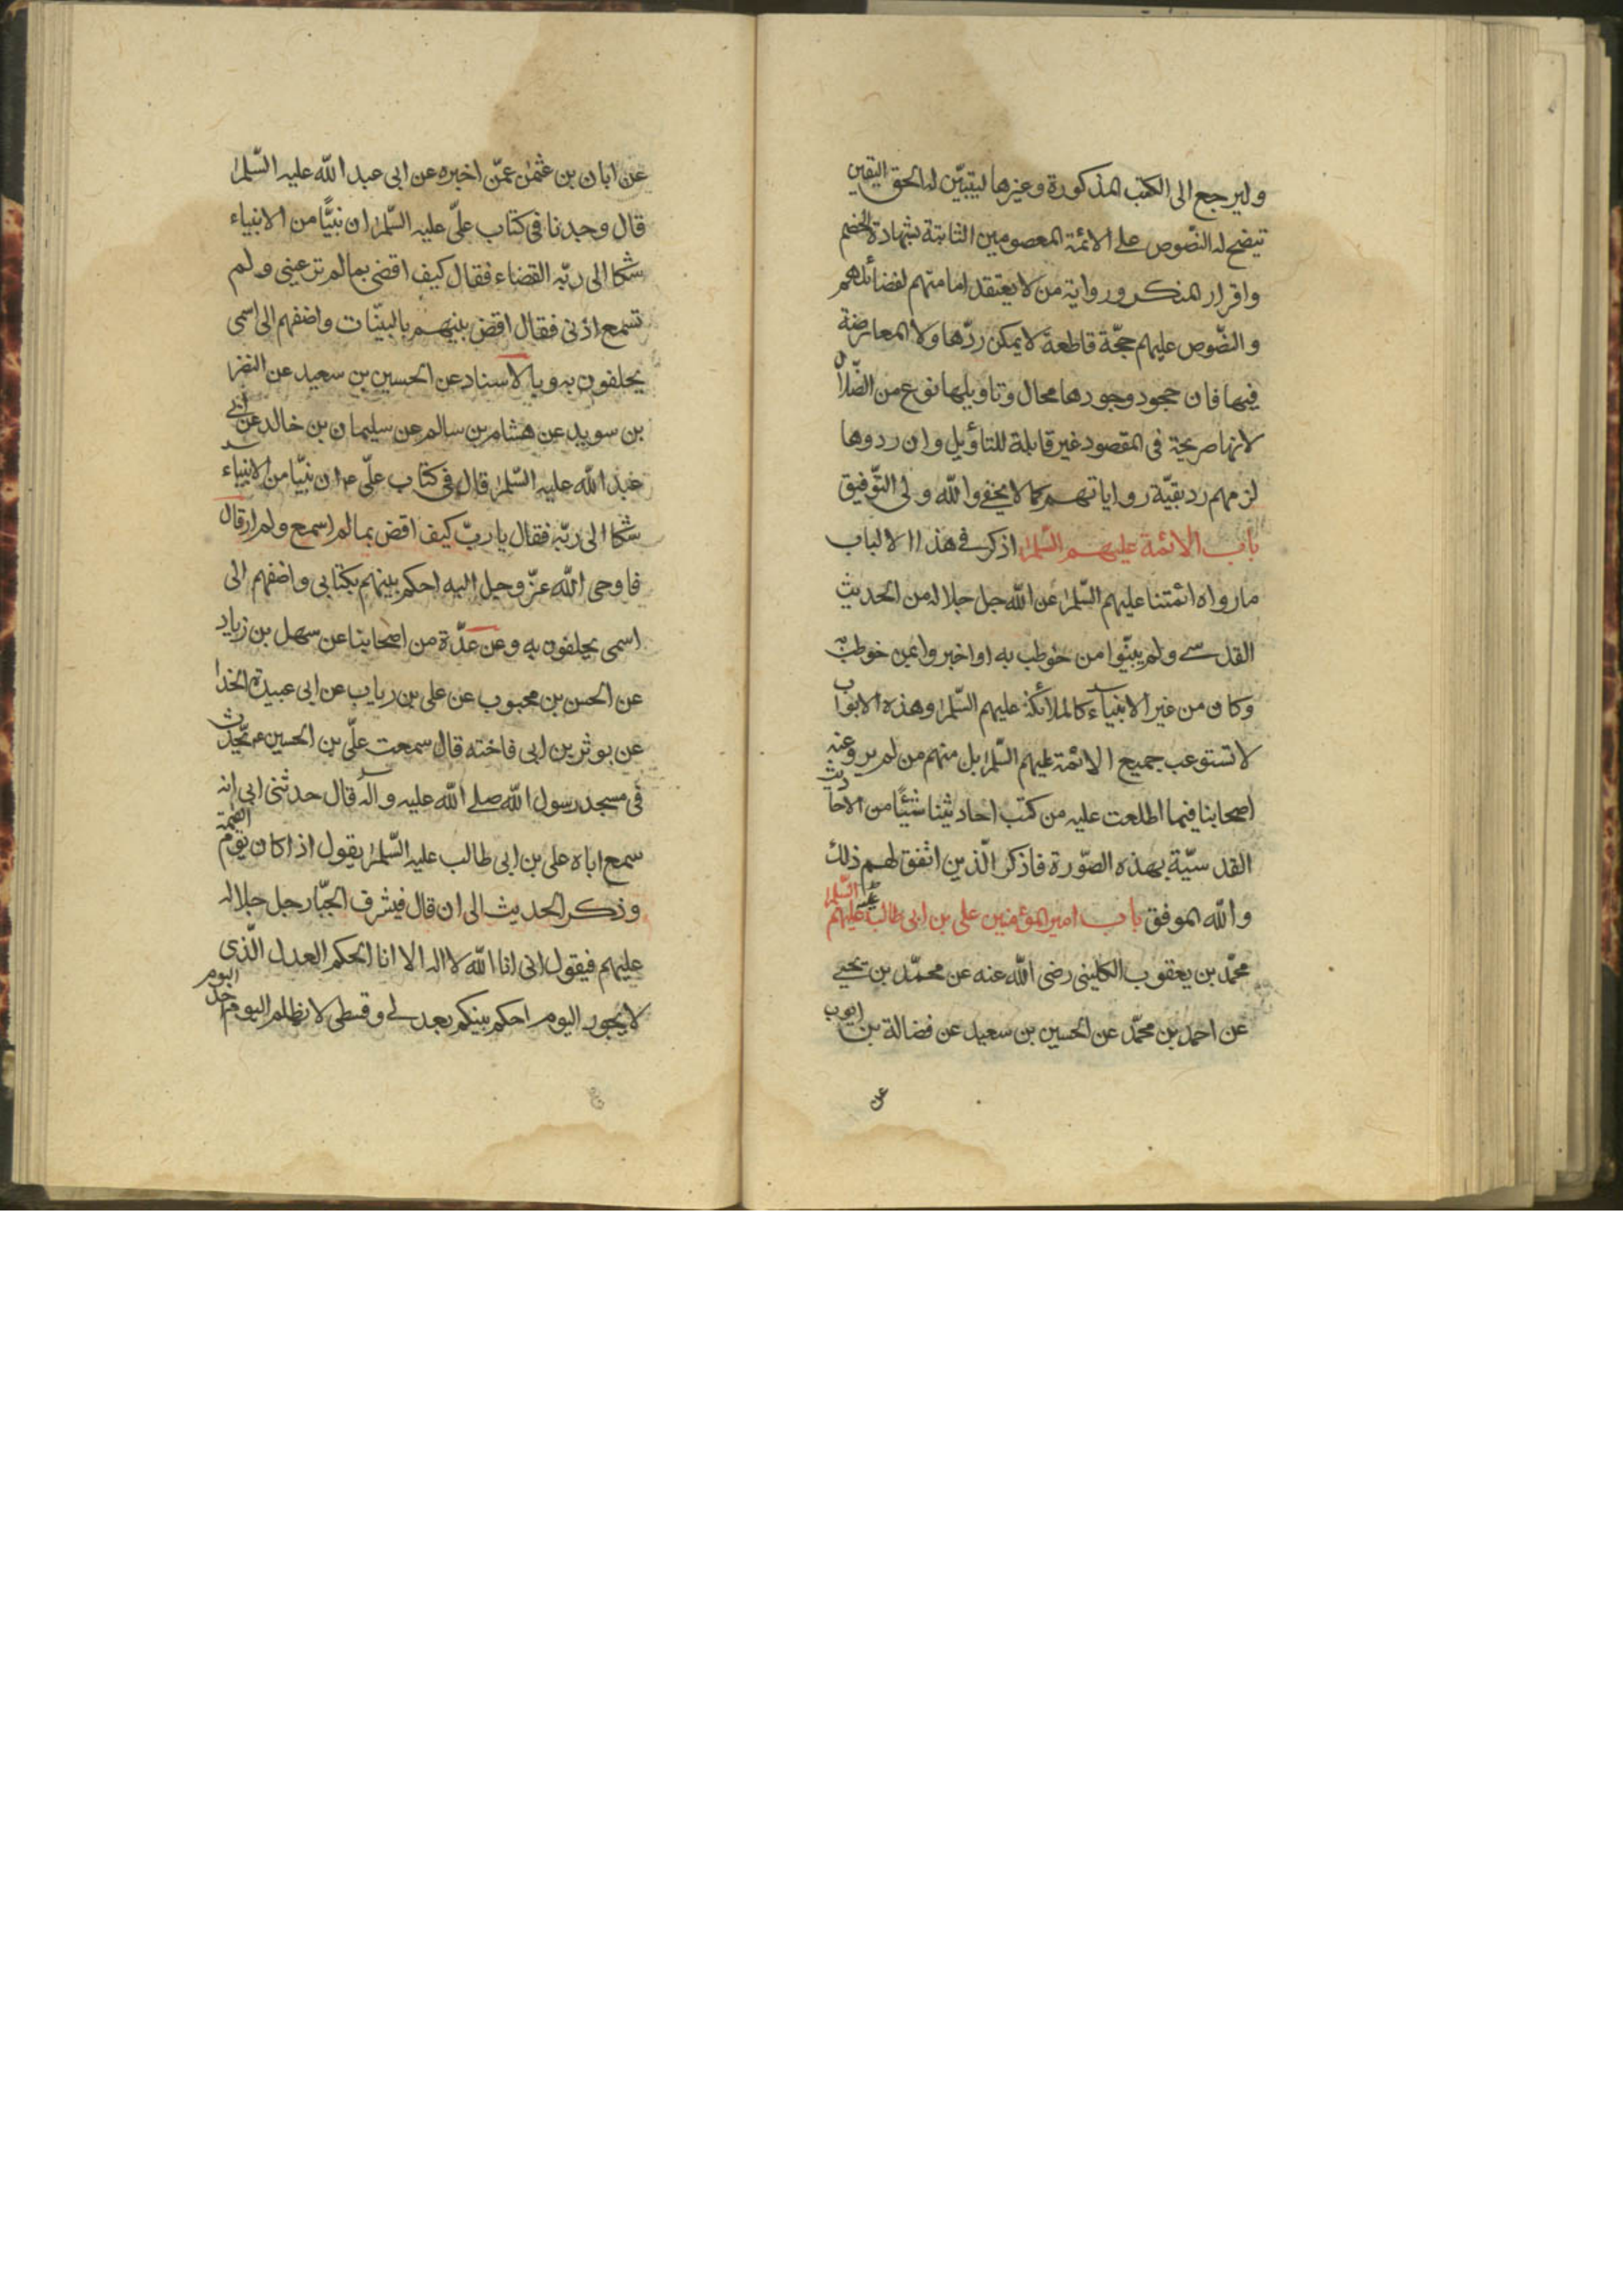 وليرجع الى الكتب المذكورة وغيرها ليتبيّن له الحق اليقين
تيضح له النصوص على الائمة المعصومين الثابتة بشهادة الخصم
واقرار المنكر ورواية من لا يعتقد امامتهم لفضائلهم
والنصّوص عليهم حجّة قاطعة لا يمكن ردّها ولا المعارضة
فيها فان جحود وجودها محال وتاويلها نوع من الضّلال
لانها صريحة فى المقصود غير قابلة للتأويل وان ردوها
لزمهم رد بقيّة رواياتهم كما لا يخفى والله ولى التّوفيق
باب الائمة عليهم السّلم اذكر فى هذا الالباب
مارواه ائمتنا عليهم السّلم عن الله جل جلاله من الحديث
القدسے ولم يبيّنوا من خوطب به او اخبروا عمن خوطب به
وكان من غير الانبياء كالملائكة عليهم السّلم وهذه الابواب
لا تستوعب جميع الائمة عليهم السّلم بل منهم من لم يرو عنه
اصحابنا فيما اطلعت عليه من كتب احاديثنا شيئًا من الاحاديث
القدسيّة بهذه الصّورة فاذكر الّذين اتفق لهم ذلك
والله الموفق باب امير المؤمنين على بن ابى طالب عليهم السّلم
محمّد بن يعقوب الكلينى رضى الله عنه عن محمّد بن يحيے
عن احمد بن محمّد عن الحسين بن سعيد عن فضالة بن ايوب
عن
عن ابان بن عثمن عمّن اخبره عن ابى عبد الله عليه السّلم
قال وجدنا فى كتاب علىّ عليه السّلم ان نبيًّا من الانبياء
شكا الى ربّه القضاء فقال كيف اقضى بما لم تر عينى ولم
تسمع اذنى فقال اقض بينهم بالبيّنات واضفهم الى اسمى
يحلفون به وبالاسناد عن الحسين بن سعيد عن النضر
بن سويد عن هشام بن سالم عن سليمان بن خالد عن ابى
عبد الله عليه السّلم قال فى كتاب علىّ ع ان نبيّا من الانبياء
شكا الى ربّه فقال يا ربّ كيف اقض بما لم اسمع ولم ار قال
فاوحى الله عزّ وجل اليه احكم بينهم بكتابى واضفهم الى
اسمى يحلفون به وعن عدّة من اصحابنا عن سهل بن زياد
عن الحسن بن محبوب عن على بن رياب عن ابى عبيدة الحذا
عن بوثر بن ابى فاخته قال سمعت علىّ بن الحسين ع يحّدث
فى مسجد رسول الله صلے الله عليه وآله قال حدثنى ابى انه
سمع اباه على بن ابى طالب عليه السّلم يقول اذا كان يوم القيمة
وذكر الحديث الى ان قال فيشرف الجبّار جل جلاله
عليهم فيقول انى انا الله لا اله الا انا الحكم العدل الّذى
لا يجور اليوم احكم بينكم بعدلے وقسطى لا يظلم اليوم احد اليوم